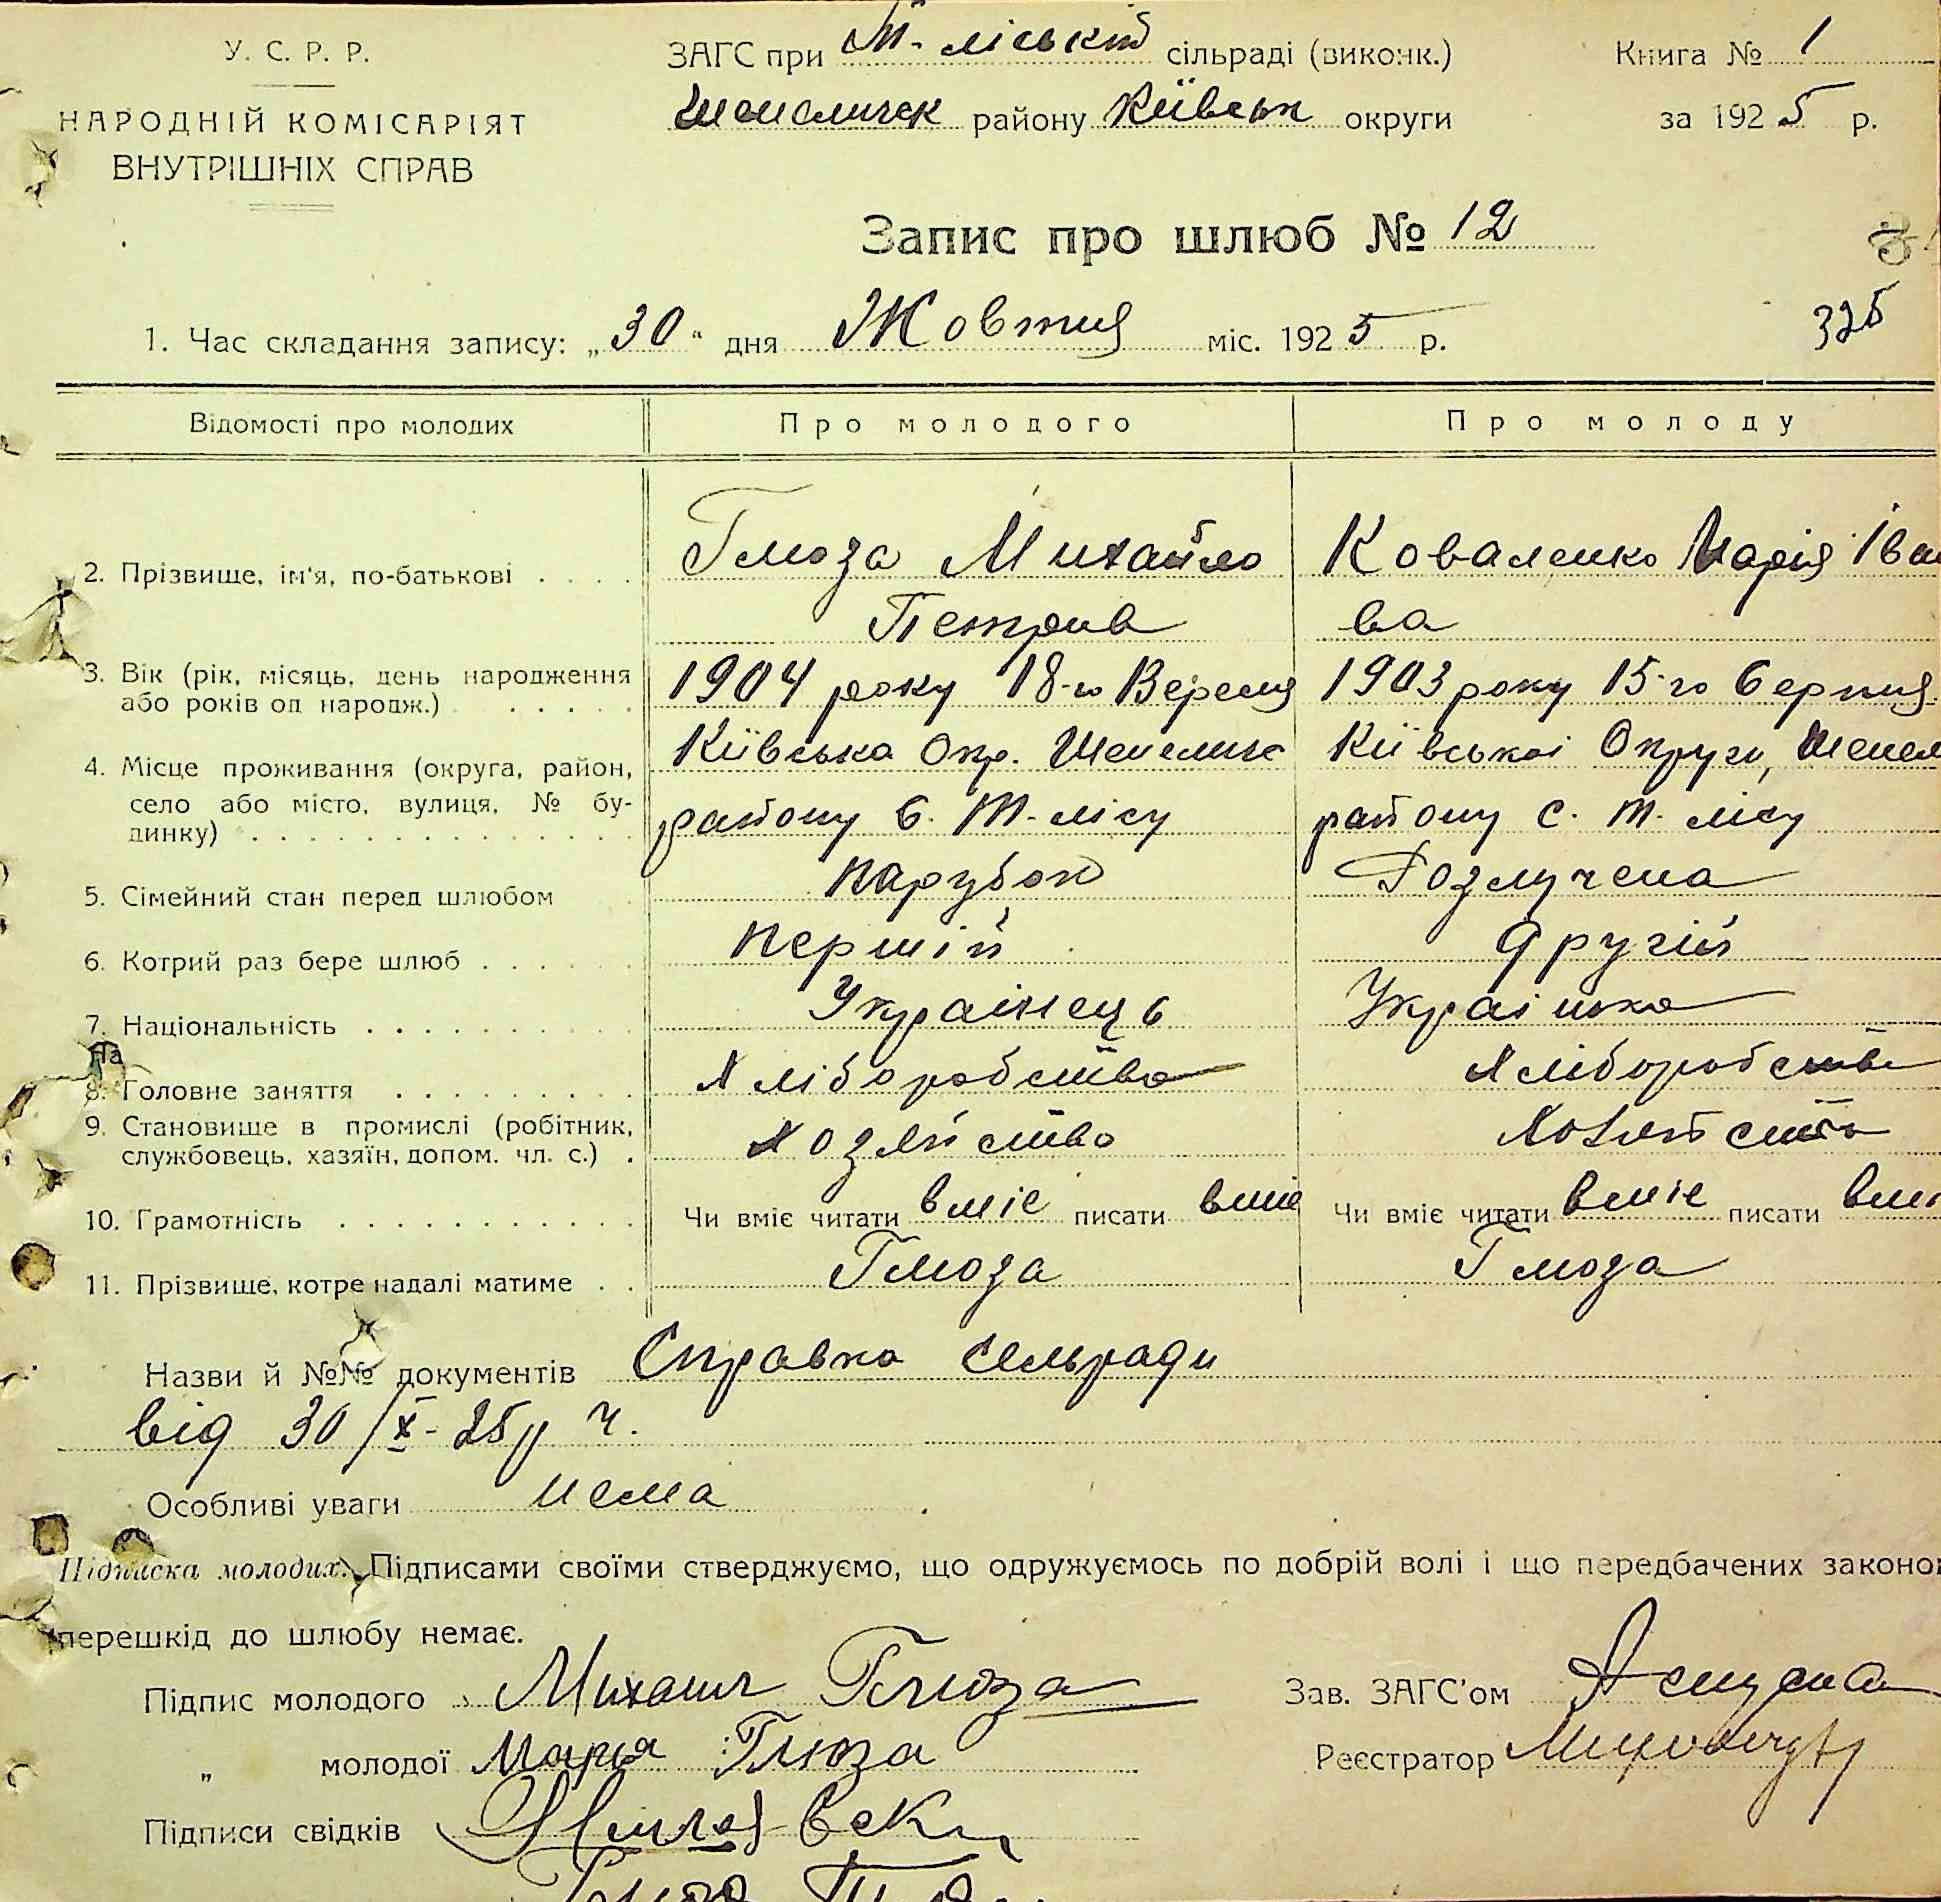 У. С. Р. Р.
НАРОДНІЙ КОМІСАРІЯТ
ВНУТРІШНІХ СПРАВ
ЗАГС при Т-ліській сільраді (виконк.)
Шепеличск району Київськ округи
Книга № 1
за 1925 р.
Запис про шлюб № 12
1. Час складання запису: „30“ дня Жовтня міс. 1925 р.
325
Відомості про молодих Про молодого Про молоду
2. Прізвище, ім'я, по-батькові . . . . Глюза Михайло Коваленко Марія Іван
Петрив ва
3. Вік (рік, місяць, день народження 1904 року 18-го Вересня 1903 року 15-го Серпня
або років од народж.) . . . . .
4. Місце проживання (округа, район, Київська Окр. Шепелич Київськоі Округи, Шепел
село або місто, вулиця, № бу- району С. Т-лісу району с. Т. лісу
динку) . . . . . . . . . . . . . .
5. Сімейний стан перед шлюбом парубок Розлучена
6. Котрий раз бере шлюб . . . . . . першій другій
7. Національність . . . . . . . . . . Украінець Украінка
На
8. Головне заняття . . . . . . . . . Хліборобство Хліборобство
9. Становище в промислі (робітник, Хозяйство Хозяйство
службовець, хазяїн, допом. чл. с.) .
10. Грамотність . . . . . . . . . . . Чи вміє читати вміє писати вміє Чи вміє читати вміє писати вміє
11. Прізвище, котре надалі матиме . . Глюза Глюза
Назви й №№ документів Справка сельради
від 30/X-25 р Ч.
Особливі уваги нема
Підписка молодих. Підписами своїми стверджуємо, що одружуємось по добрій волі і що передбачених законом
перешкід до шлюбу немає.
Підпис молодого Михаил Глюза Зав. ЗАГС'ом
„ молодої Марія Глюза Реєстратор
Підписи свідків